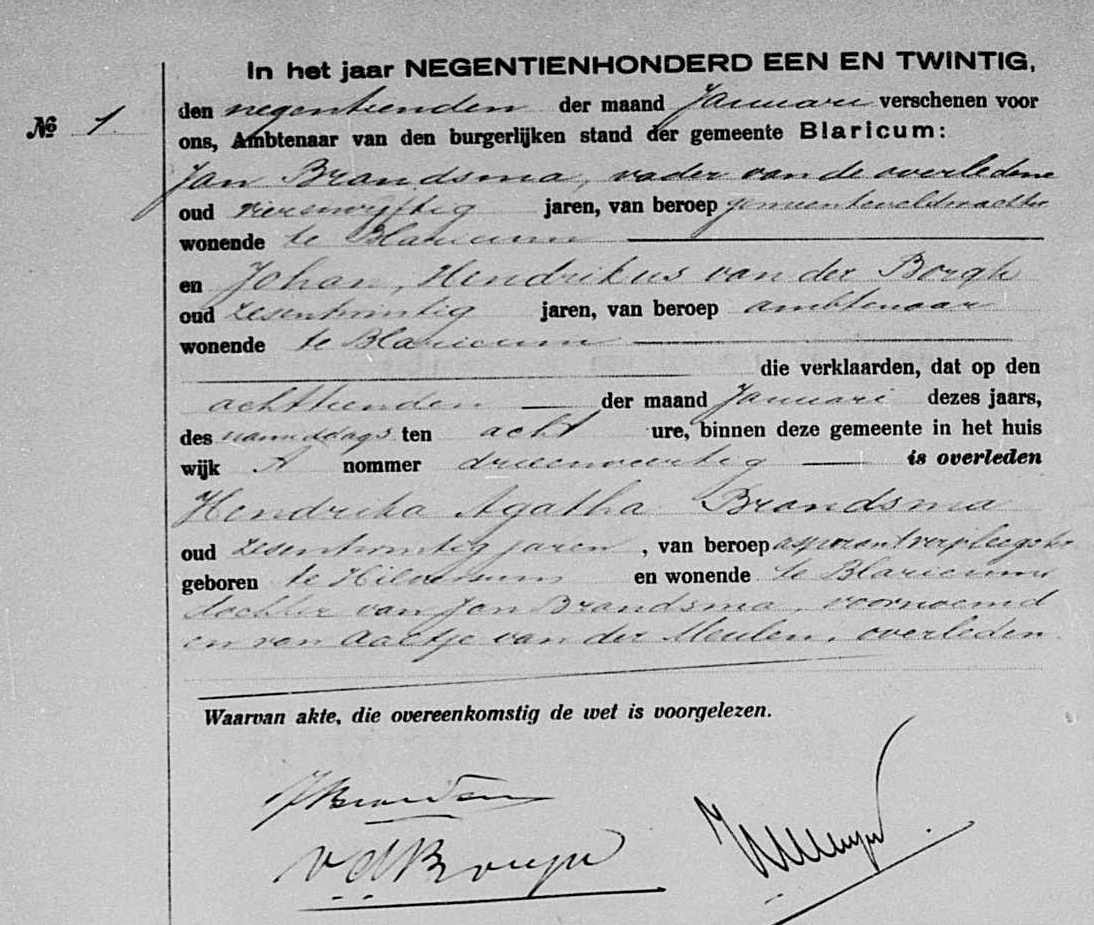 In het jaar NEGENTIENHONDERD EEN EN TWINTIG,
den negentienden der maand Januari verschenen voor
№ 1.
ons, Ambtenaar van den burgerlijken stand der gemeente Blaricum:
Jan Brandsma, vader van de overledene
oud vierenvijftig jaren, van beroep gemeenteveldwachter
wonende te Blaricum
en Johan Hendrikus van der Borgh
oud zesentwintig jaren, van beroep ambtenaar
wonende te Blaricum
die verklaarden, dat op den
achttienden der maand Januari dezes jaars,
des namiddags ten acht ure, binnen deze gemeente in het huis
wijk A nommer drieenveertig is overleden
Hendrika Agatha Brandsma
oud zesentwintig jaren, van beroep aspirant verpleegster
geboren te Hilversum en wonende te Blaricum,
dochter van Jan Brandsma, voornoemd
en van Aaltje van der Meulen, overleden.
Waarvan akte, die overeenkomstig de wet is voorgelezen.